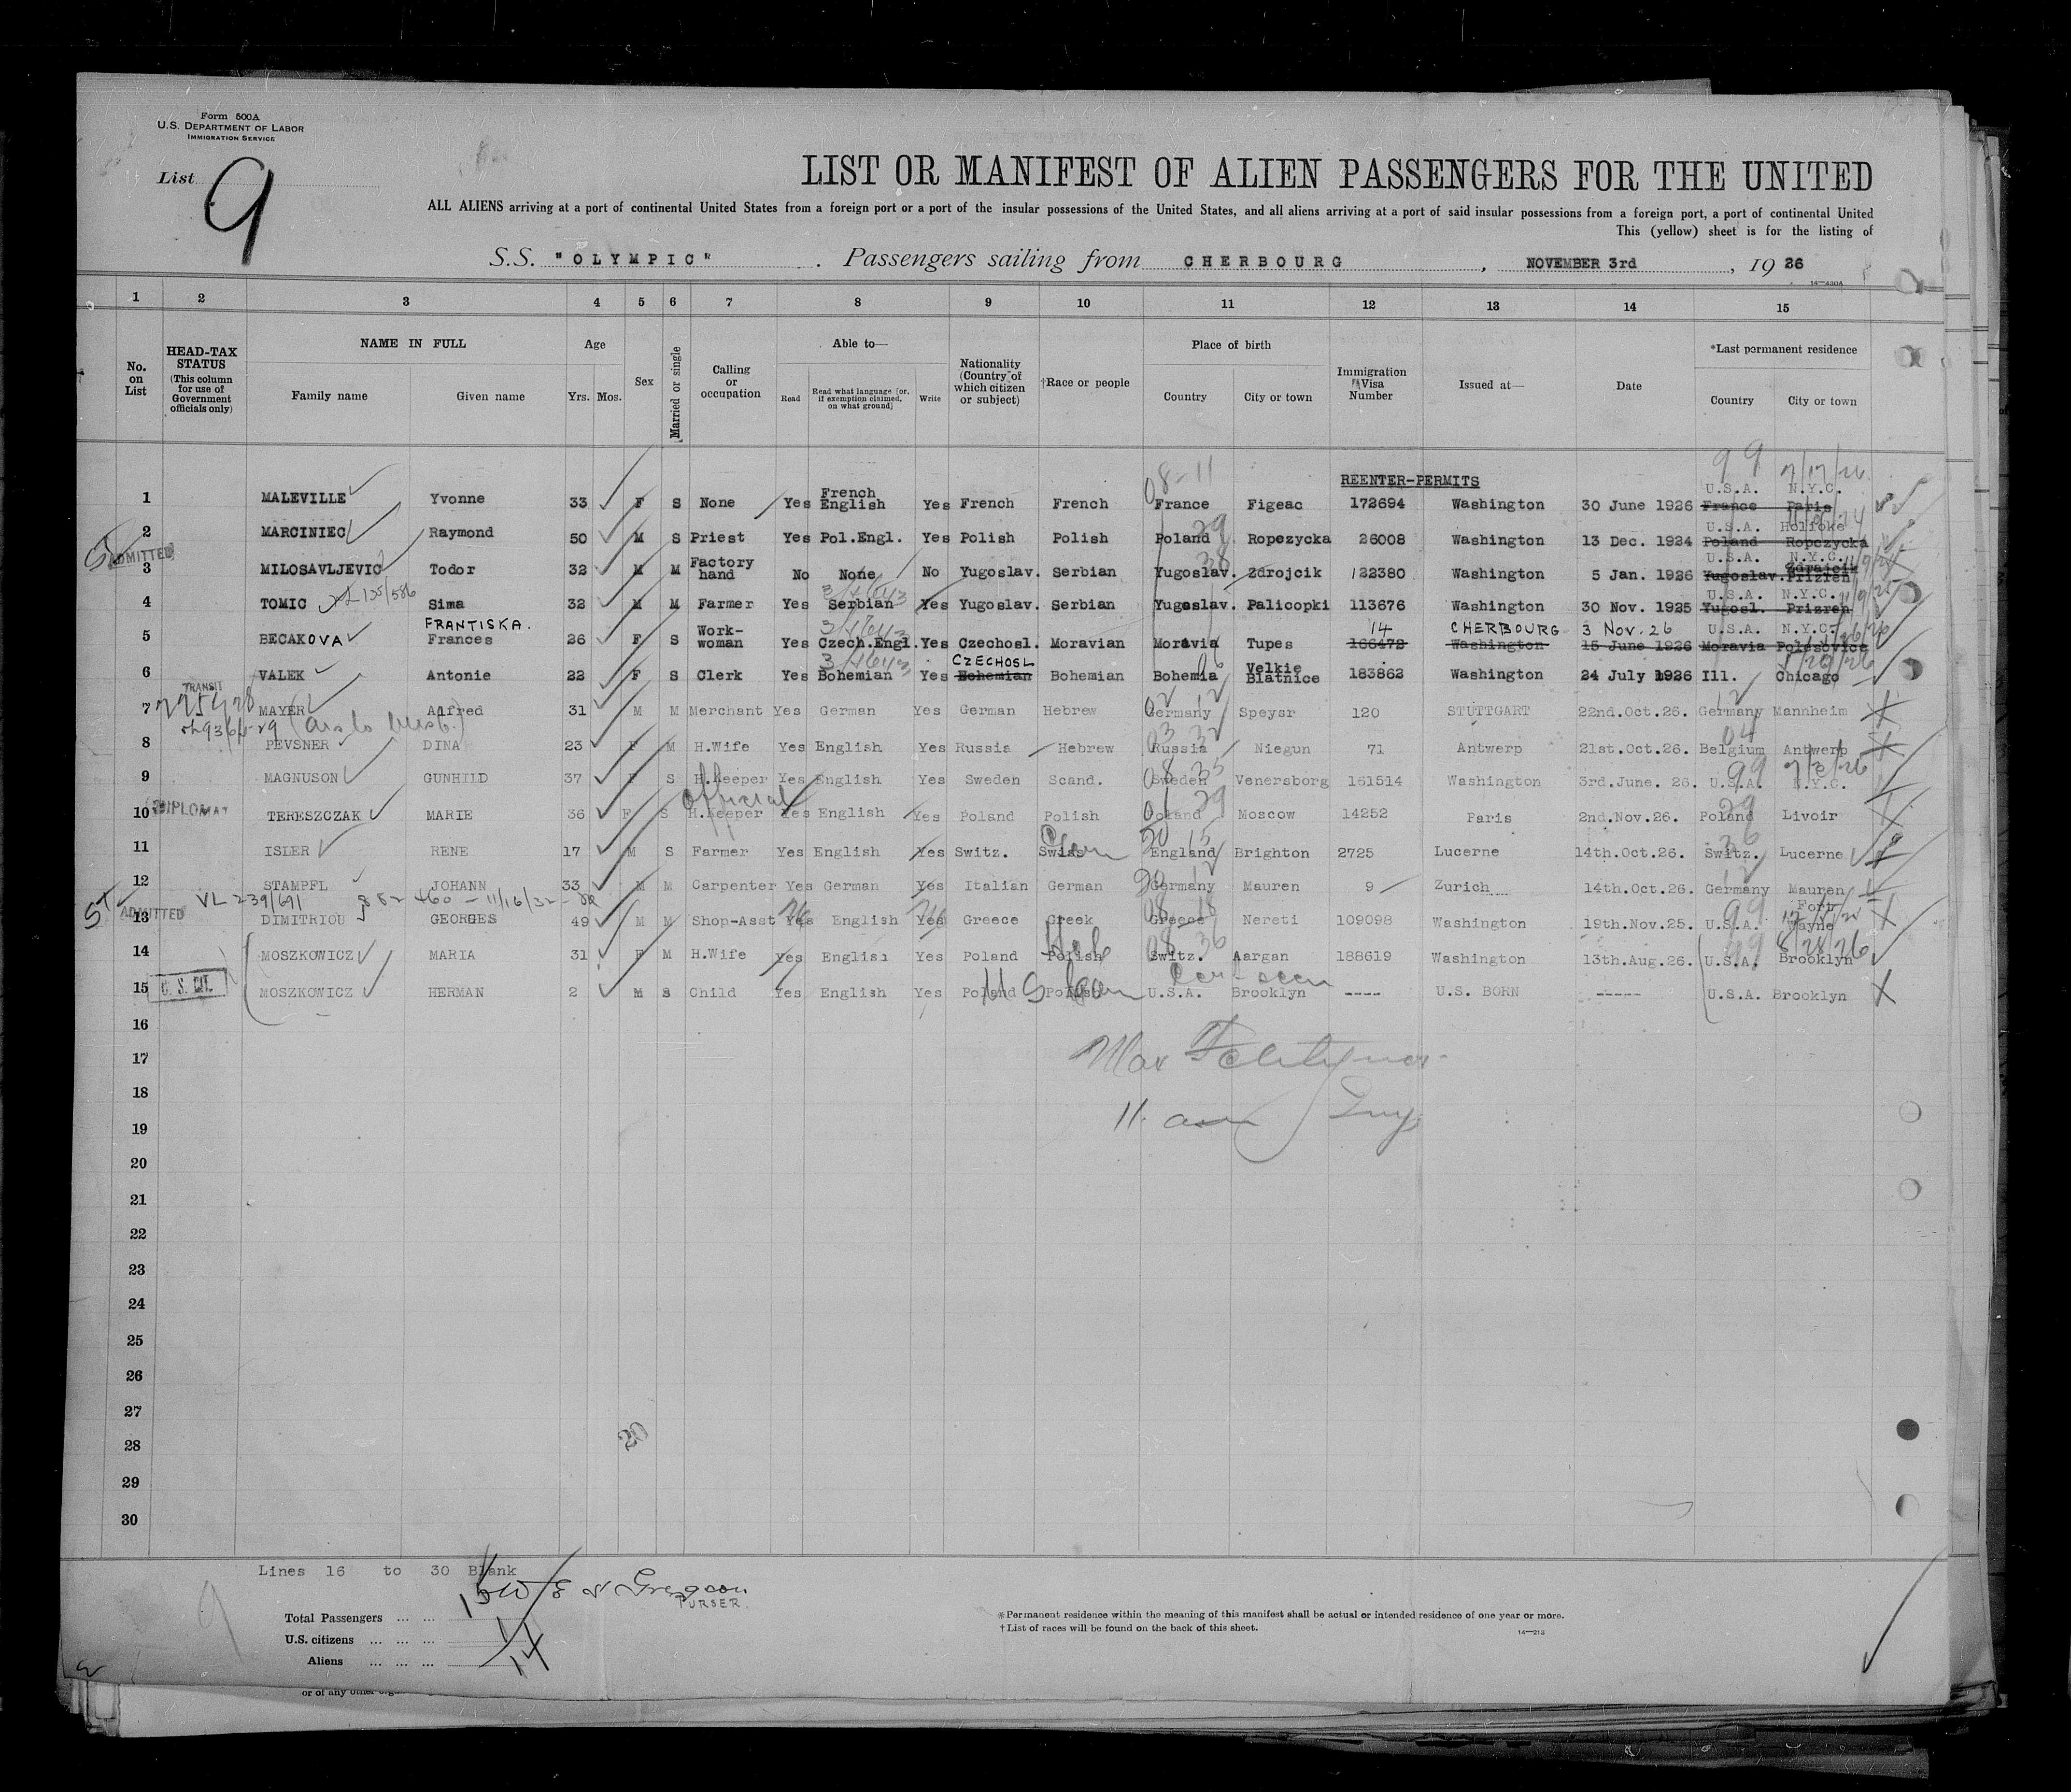 Form 500A
U.S. DEPARTMENT OF LABOR
IMMIGRATION SERVICE
List 9
LIST OR MANIFEST OF ALIEN PASSENGERS FOR THE UNITED
ALL ALIENS arriving at a port of continental United States from a foreign port or a port of the insular possessions of the United States, and all aliens arriving at a port of said insular possessions from a foreign port, a port of continental United
This (yellow) sheet is for the listing of
S.S. "OLYMPIC" . Passengers sailing from CHERBOURG , NOVEMBER 3rd , 19 26
14—430A
1 2 3 4 5 6 7 8 9 10 11 12 13 14 15
No. on List
HEAD-TAX STATUS (This column for use of Government officials only)
NAME IN FULL Family name Given name
Age Yrs. Mos.
Sex
Married or single
Calling or occupation
Able to— Read Read what language [or, if exemption claimed, on what ground] Write
Nationality (Country of which citizen or subject)
†Race or people
Place of birth Country City or town
Immigration Visa Number
Issued at—
Date
*Last permanent residence Country City or town
08-11 REENTER-PERMITS 99 7/17/26
1 MALEVILLE Yvonne 33 F S None Yes French English Yes French French France Figeac 172694 Washington 30 June 1926 U.S.A. N.Y.C. France Paris
2 MARCINIEC Raymond 50 M S Priest Yes Pol.Engl. Yes Polish Polish Poland 29 Ropczycka 26008 Washington 13 Dec. 1924 U.S.A. Holioke Poland Ropczycka
ADMITTED
3 MILOSAVLJEVIC Todor 32 M M Factory hand No None No Yugoslav. Serbian Yugoslav. 38 Zdrojcik 122380 Washington 5 Jan. 1926 U.S.A. N.Y.C. Yugoslav. Prizren
4 TOMIC Sima 32 M M Farmer Yes Serbian Yes Yugoslav. Serbian Yugoslav. Palicopki 113676 Washington 30 Nov. 1925 U.S.A. N.Y.C. Yugosl. Prizren
5 BECAKOVA FRANTISKA. Frances 26 F S Work-woman Yes Czech.Engl. Yes Czechosl. Moravian Moravia Tupes 14 166479 CHERBOURG Washington 3 Nov. 26 15 June 1926 U.S.A. N.Y.C. Moravia Polesovice
6 VALEK Antonie 22 F S Clerk Yes Bohemian Yes CZECHOSL Bohemian Bohemian Bohemia Velkie Blatnice 183862 Washington 24 July 1926 Ill. Chicago
TRANSIT
7 MAYER Alfred 31 M M Merchant Yes German Yes German Hebrew Germany Speysr 120 STUTTGART 22nd.Oct.26. Germany Mannheim
8 PEVSNER DINA 23 F M H.Wife Yes English Yes Russia Hebrew Russia Niegun 71 Antwerp 21st.Oct.26. Belgium Antwerp
9 MAGNUSON GUNHILD 37 F S H.Keeper Yes English Yes Sweden Scand. Sweden Venersborg 151514 Washington 3rd.June. 26. U.S.A. N.Y.C.
official
10 DIPLOMAT TERESZCZAK MARIE 36 F S H.Keeper Yes English Yes Poland Polish Poland Moscow 14252 Paris 2nd.Nov.26. Poland Livoir
11 ISLER RENE 17 M S Farmer Yes English Yes Switz. Swiss England Brighton 2725 Lucerne 14th.Oct.26. Switz. Lucerne
12 STAMPFL JOHANN 33 M M Carpenter Yes German Yes Italian German Germany Mauren 9 Zurich 14th.Oct.26. Germany Mauren
VL 239/691
ADMITTED
13 DIMITRIOU GEORGES 49 M M Shop-Asst Yes English Yes Greece Greek Greece Nereti 109098 Washington 19th.Nov.25. U.S.A. Fort Wayne
14 MOSZKOWICZ MARIA 31 F M H.Wife Yes English Yes Poland Polish Heb Switz. Aargan 188619 Washington 13th.Aug.26. U.S.A. Brooklyn 8/28/26
15 U.S. CIT. MOSZKOWICZ HERMAN 2 M S Child Yes English Yes Poland Polish U.S.A. Brooklyn ---- U.S. BORN ----- U.S.A. Brooklyn
16
17
18
19
20
21
22
23
24
25
26
27
28
29
30
Lines 16 to 30 Blank
PURSER.
Total Passengers ... ... 15
U.S. citizens ... ... ... 1
Aliens ... ... ... 14
*Permanent residence within the meaning of this manifest shall be actual or intended residence of one year or more.
†List of races will be found on the back of this sheet.
14—213